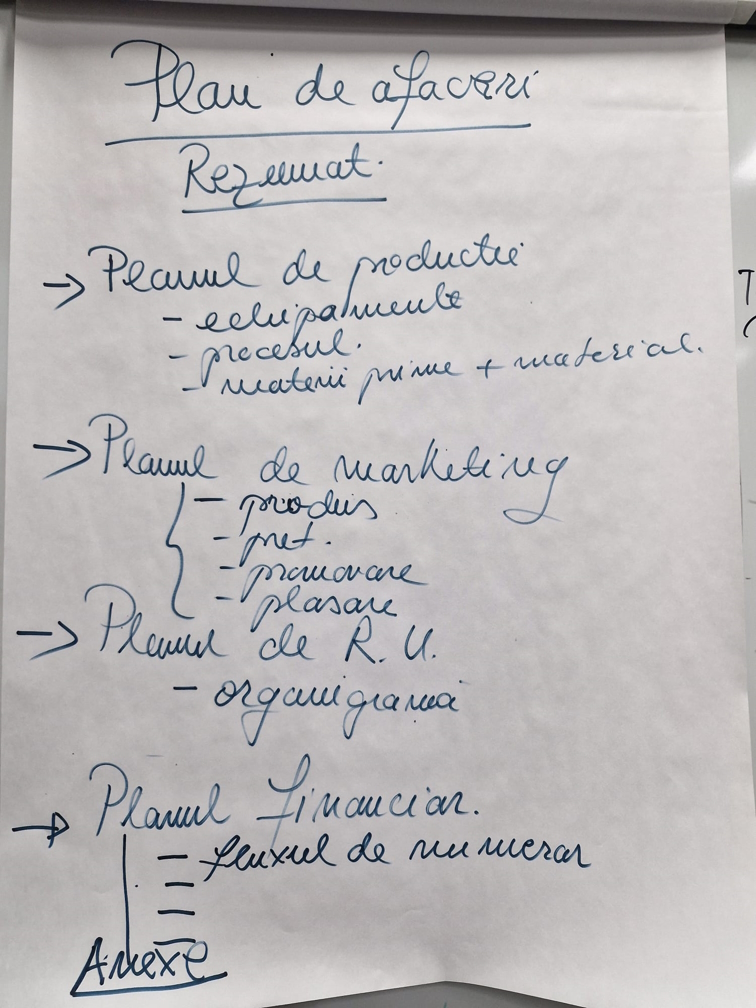 Plan de afaceri
Rezumat.
→ Planul de productie
- echipamente
- procesul.
- materii prime + material.
→ Planul de marketing
- produs
- pret.
- promovare
- plasare
→ Planul de R. U.
- organigramă
→ Planul financiar.
- fluxul de numerar
-
-
-
Anexe